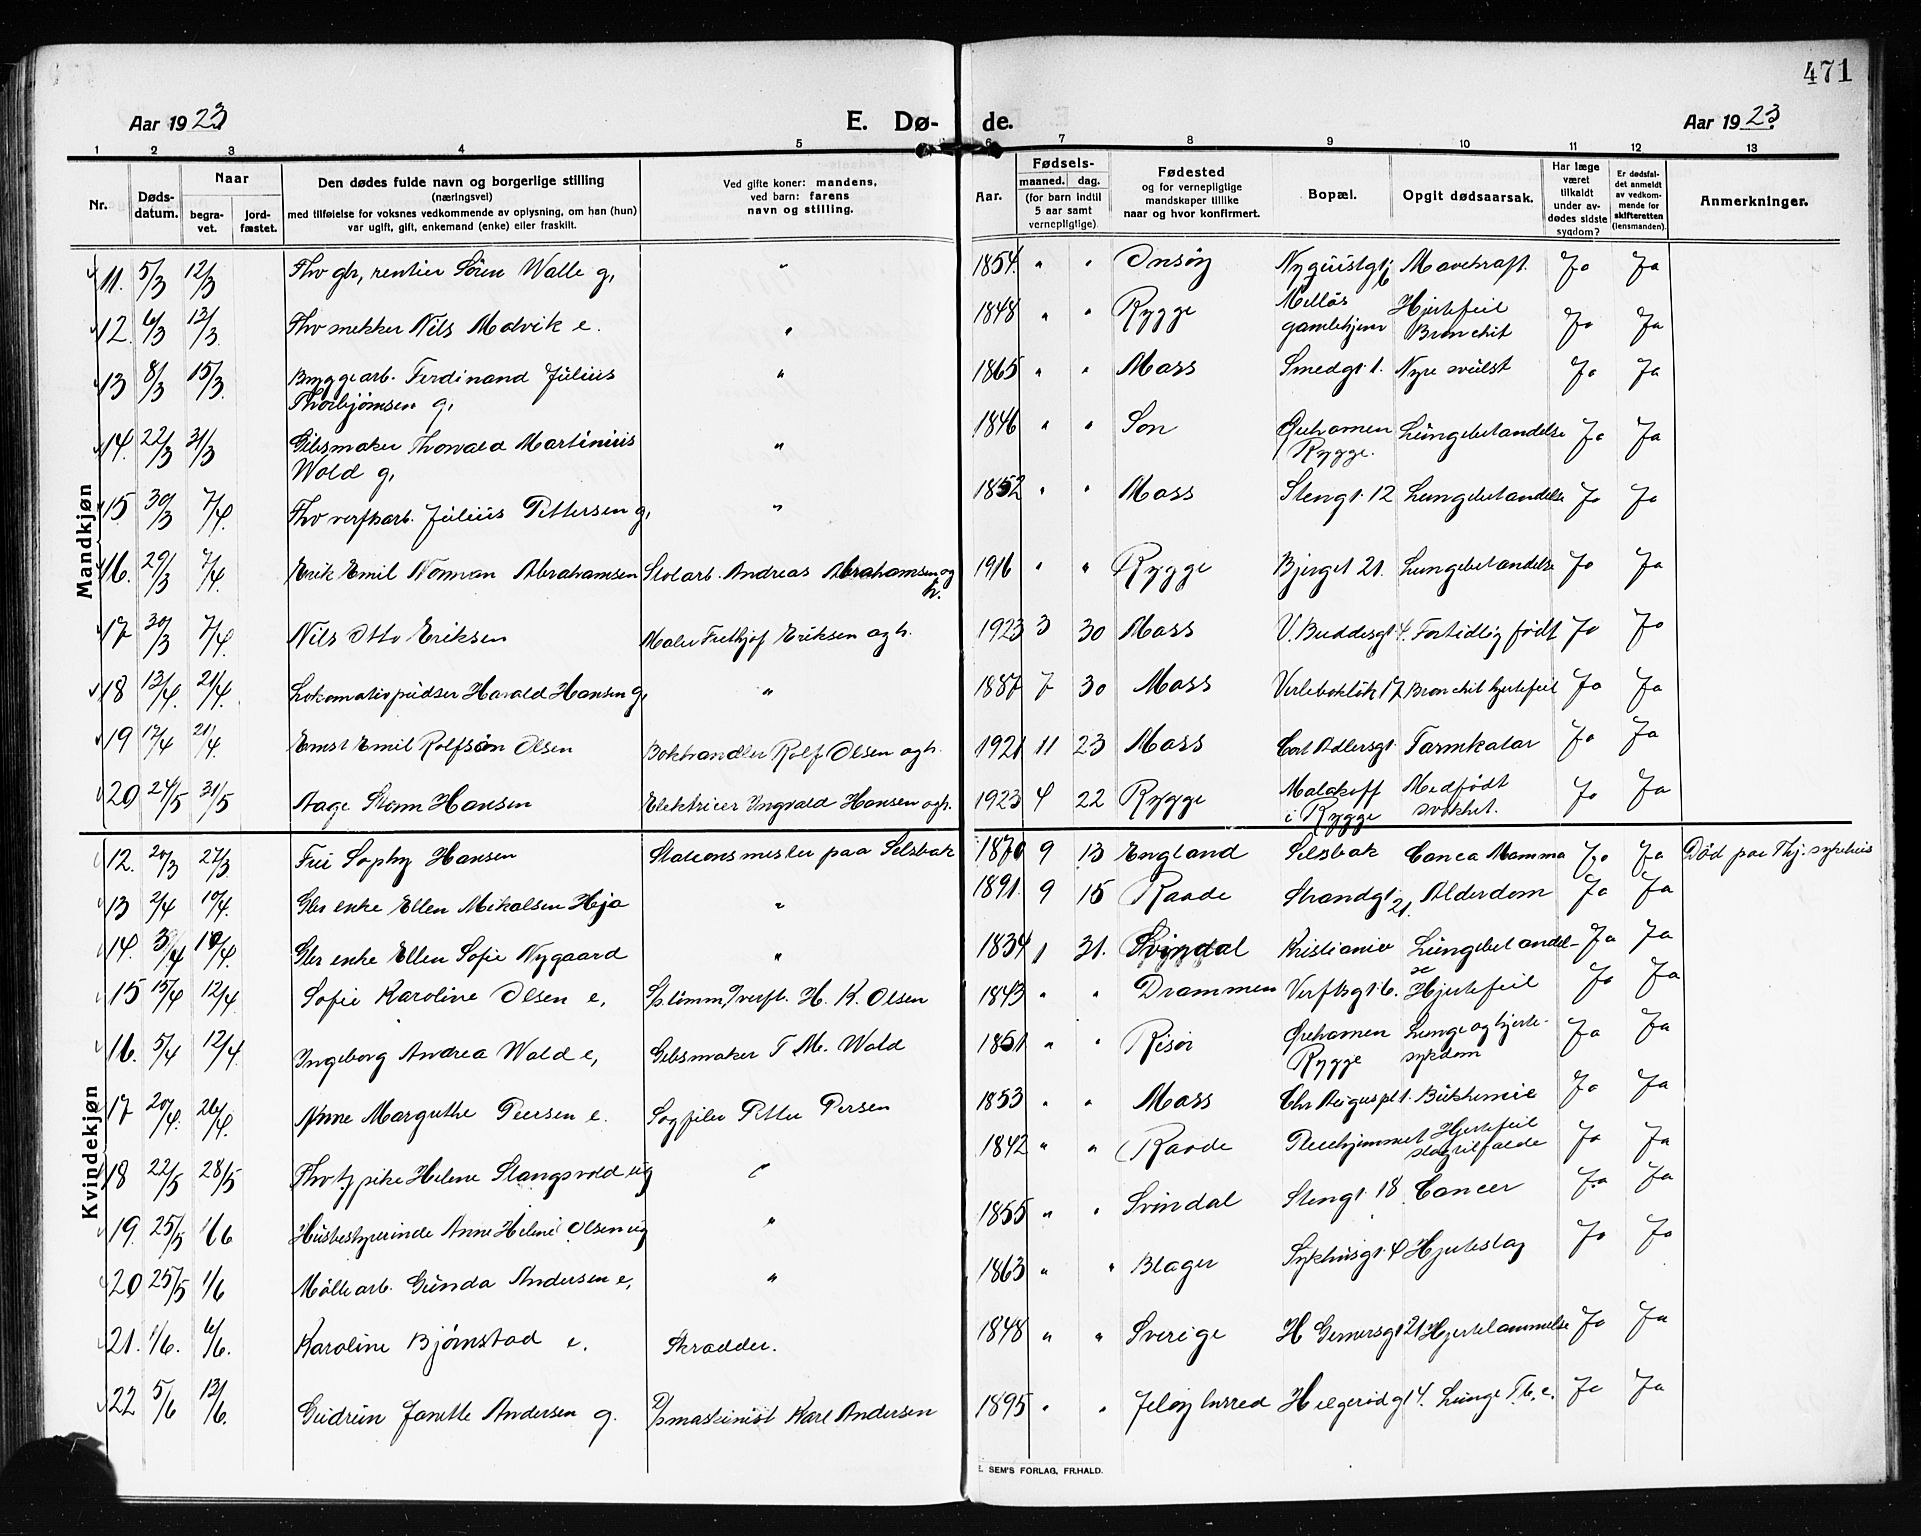 471
Aar 1923
E. Dø-
de.
Aar 1923
1 2 3 4 5 6 7 8 9 10 11 12 13
Nr.
Døds-
datum.
Naar
begra-
vet.
jord-
fæstet.
Den dødes fulde navn og borgerlige stilling
(næringsvei)
med tilføielse for voksnes vedkommende av oplysning, om han (hun)
var ugift, gift, enkemand (enke) eller fraskilt.
Ved gifte koner: mandens,
ved barn: farens
navn og stilling.
Aar.
Fødsels-
maaned. dag.
(for barn indtil
5 aar samt
vernepligtige).
Fødested
og for vernepligtige
mandskaper tillike
naar og hvor konfirmert.
Bopæl.
Opgit dødsaarsak.
Har læge
været
tilkaldt
under av-
dødes sidste
sygdom?
Er dødsfal-
det anmeldt
av vedkom-
mende for
skifteretten
(lensmanden).
Anmerkninger.
Mandkjøn
11. 5/3 12/3 Fhv gbr, rentier Sören Walle g, " 1854. " " Onsöy Nyquistgt. 6 Mavekraft. Ja Ja
12. 6/3 13/3 Fhv snekker Nils Malvik e. " 1848 " " Rygge Mellös gamlehjem Hjertefeil Bronchit Ja Ja
13 8/3 15/3 Bryggearb. Ferdinand Julius " 1865 " " Moss Smedgt. 1. Nyre svulst Ja Ja
Thorbjørnsen g,
14. 22/3 31/3 Gibsmaker Thorvald Martinius " 1846 " " Son Ørehavnen Rygge. Lungebetændelse Ja Ja
Wold g,
15 30/3 7/4. Fhv verftsarb. Julius Pettersen g, " 1852 " " Moss Stengt. 12 Lungebetændelse Ja Ja
16. 29/3 7/4. Erik Emil Norman Abrahamsen Stolarb. Andreas Abrahamsen og h. 1916 " " Rygge Bjerget 21. Lungebetændelse Ja Ja
17 30/3 7/4. Nils Otto Eriksen Maler Frithjof Eriksen og h. 1923 3 30 Moss V. Buddesgt 4. For tidlig født Ja Ja
18 13/4. 21/4. Lokomotivpudser Harald Hansen g, " 1887 7 30 Moss 17 Bronchit hjertefeil Ja Ja
19 17/4 21/4. Ernst Emil Rolfsøn Olsen Bokhandler Rolf Olsen og h. 1921 11 23 Moss Cort Adlersgt. Tarmkatar Ja Ja
20 24/5 31/5 Aage Stam Hansen Elektriker Ingvald Hansen og h. 1923 4 22 Rygge Malakoff i Rygge Medfödt svakhet. Ja Ja
Kvindekjøn
12. 20/3 27/3. Fru Sophy Hansen Stationsmester paa Selsbak 1870 9 13 England Selsbak Canca Mamma Ja Ja Død paa Thj. sykehus
13 2/4 10/4. Gbr enke Ellen Mikalsen Hjo " 1891. 9 15 Raade Strandgt 21. Alderdom Ja Ja
14. 3/4 10/4. Gbr enke Ellen Sofie Nygaard " 1834 1 31. Svindal Kristiania Lungebetændelse Ja Ja
15 15/4 12/4 Sofie Karoline Olsen e, H. K. Olsen 1843 " " Drammen Verftsgt. 6. Hjertefeil Ja Ja
16. 5/4 12/4. Ingeborg Andrea Wold e, Gibsmaker T M. Wold 1851 " " Risør Ørehavnen Rygge Lunge og hjerte- sykdom Ja Ja
17 20/4. 26/4. Anne Margrethe Peersen e. Sagfiler Petter Persen 1853 " " Moss Ja Ja
18 22/5 28/5 Helene Stangsvold ug " 1842 " " Raade Pleiehjemmet Hjertefeil slagtilfælde Ja Ja
19. 25/5 1/6 Husbestyrerinde Anne Helene Olsen ug " 1855 " " Svindal Stengt. 18 Cancer Ja Ja
20 25/5 1/6 Mölle arb. Gunda Andersen e, " 1863 " " Blager Sykhusgt. 4 Hjerteslag Ja Ja
21. 1/6. 6/6. Karoline Bjørnstad e. Skrædder. 1848 " " Sverige H Gernersgt 21 Hjertelammelse Ja Ja
22 5/6 13/6. Gudrun Janette Andersen g. D/s maskinist Karl Andersen 1895 " " Jeløy Helgerødgt 4. Lunge T.b.c. Ja Ja
E. SEM'S FORLAG, FR.HALD.